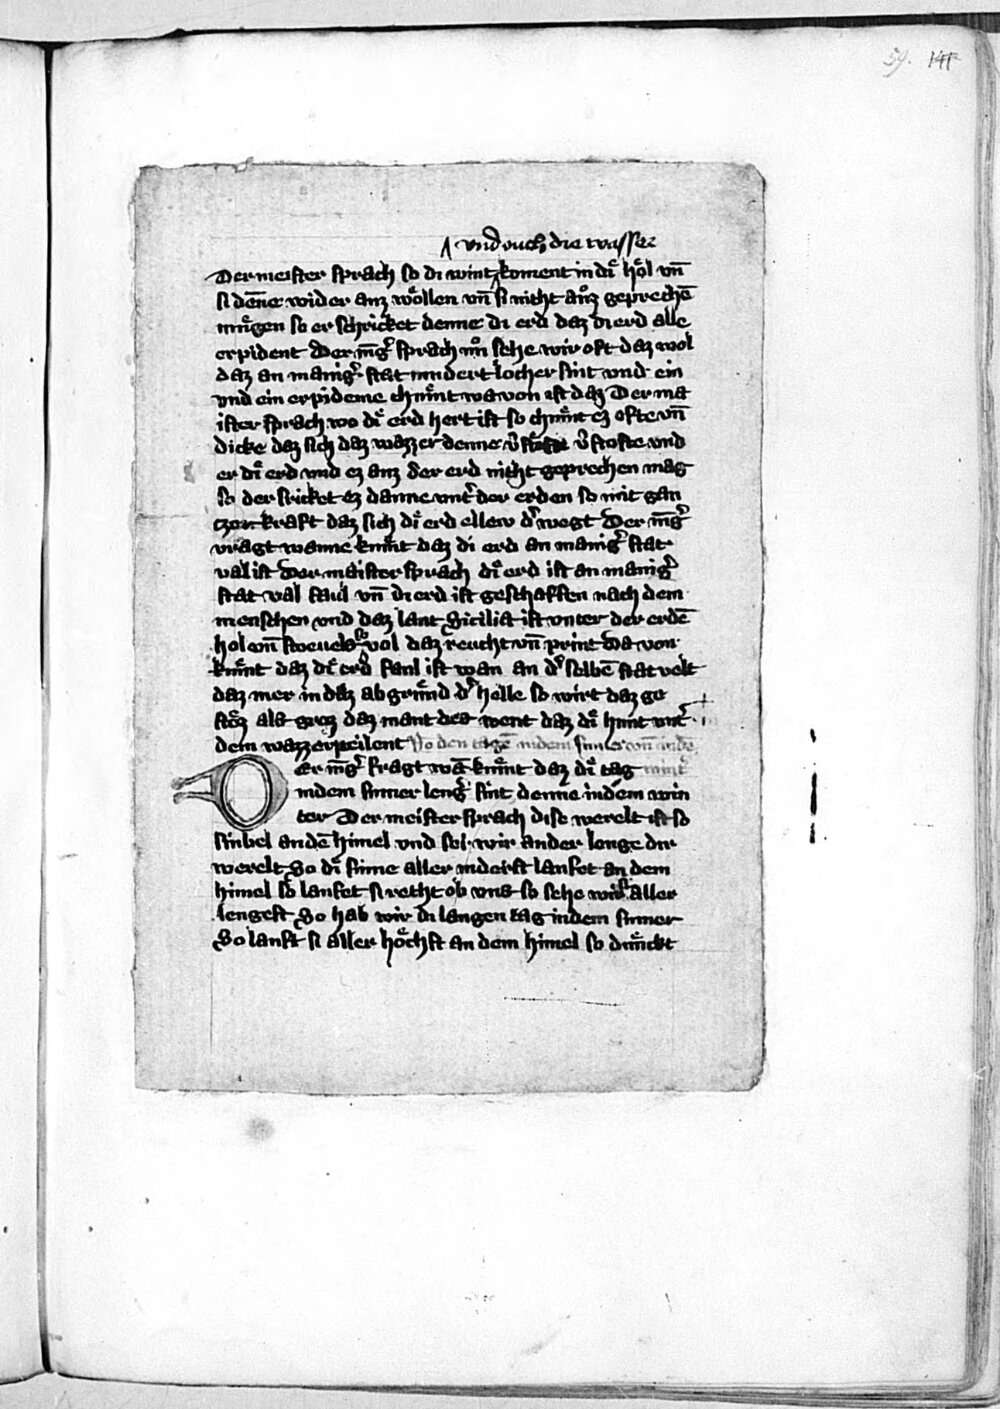 59. 141
vnd ouch die wasser
Der meister sprach so di wint koment in diͤ hoͤl vn̄
si den̄e wider auz woͤllen vn̄ si nicht auͦz geprechē
muͤgen so er schricket denne di erd daz di erd alle
erpident Der m̄gͬ sprach nuͦ sehe wir oft daz wol
daz an manigͬ stat nindert loͤcher sint vnd ein
vnd ein erpideme chuͤmt wa von ist daz Der ma
ister sprach wo diͤ erd hert ist so chuͤmt ez ofte vn̄
dicke daz sich daz wazzer denne v̄ stoste vnd
er diͤ erd vnd ez auz der erd nicht geprechen mag
so der scricket ez danne vntͬ der erden so mit gan
czer kraft daz sich diͤ erd ellew dͬ wegt Der m̄gͬ
vragt wanne kuͤmt daz di erd an manigͬ stat
val ist Der maister sprach diͤ erd ist an manigͬ
stat val faul vn̄ di erd ist geschaffen nach dem
menschen vnd daz lant Sicilia ist vnter der erdē
hol vn̄ sweuels vol daz reucht vn̄ print Da von
kuͤmt daz diͤ erd faul ist wan an dͬ selbē stat velt
daz mer in daz abgruͤnd dͬ helle so wirt daz ge
stoͤz als groz daz mant des went daz diͤ hunt vntͬ
dem wazzer peilent Vo den tagē in dem sumer vn̄ in dē
Er m̄gͬ fragt wā kuͤmt daz diͤ tag wintͬ
in dem sumer lengͬ sint denne in dem win
ter Der meister sprach dise werelt ist so
sinbel an dē himel vnd sei wir an der lenge der
werelt So diͤ sunne aller niderst laufet an dem
himel so laufet si recht ob vns so sehe wir aller
lengest So hab wir di langen tag in dem sumer
So lauft si aller hoͤchst an dem himel so duͤnckt